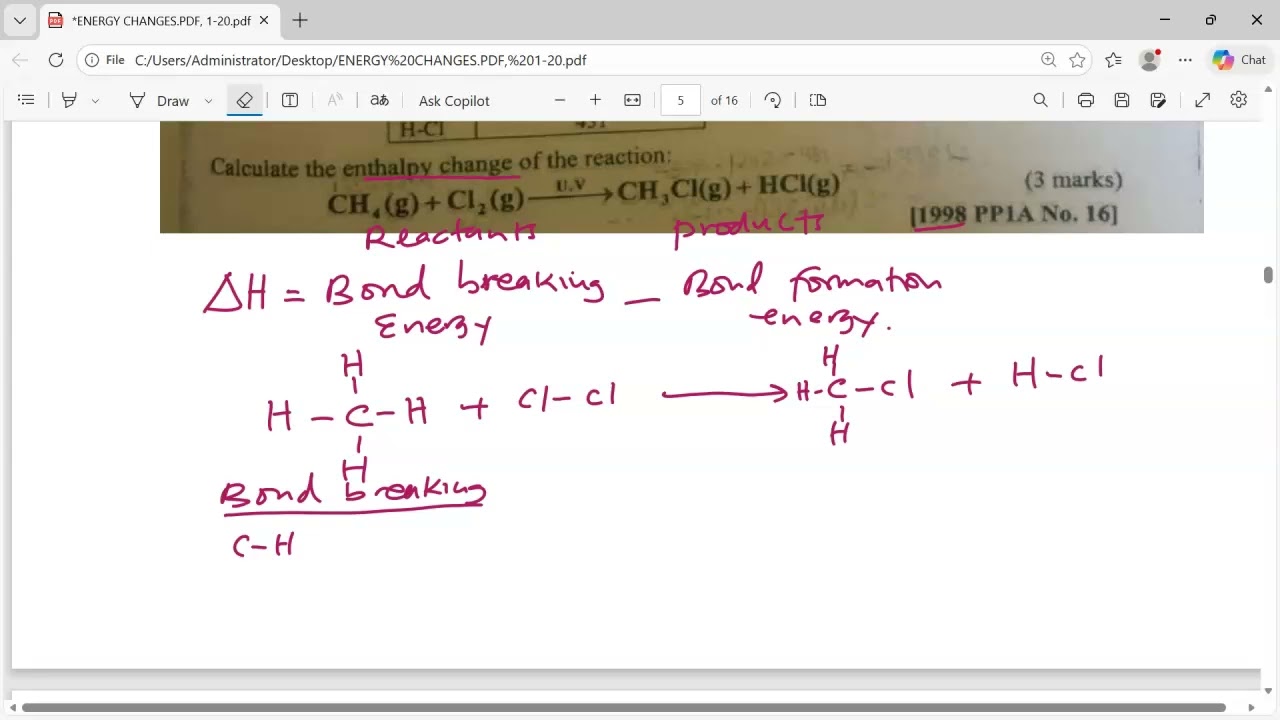 *ENERGY CHANGES.PDF, 1-20.pdf
File C:/Users/Administrator/Desktop/ENERGY%20CHANGES.PDF,%201-20.pdf
Chat
Draw
Ask Copilot
5 of 16
H-Cl 431
Calculate the enthalpy change of the reaction:
CH₄(g) + Cl₂(g) U.V → CH₃Cl(g) + HCl(g)
(3 marks)
[1998 PP1A No. 16]
Reactants products
ΔH = Bond breaking — Bond formation
Energy energy.
H H
H - C - H + Cl - Cl → H - C - Cl + H - Cl
H H
Bond breaking
C-H